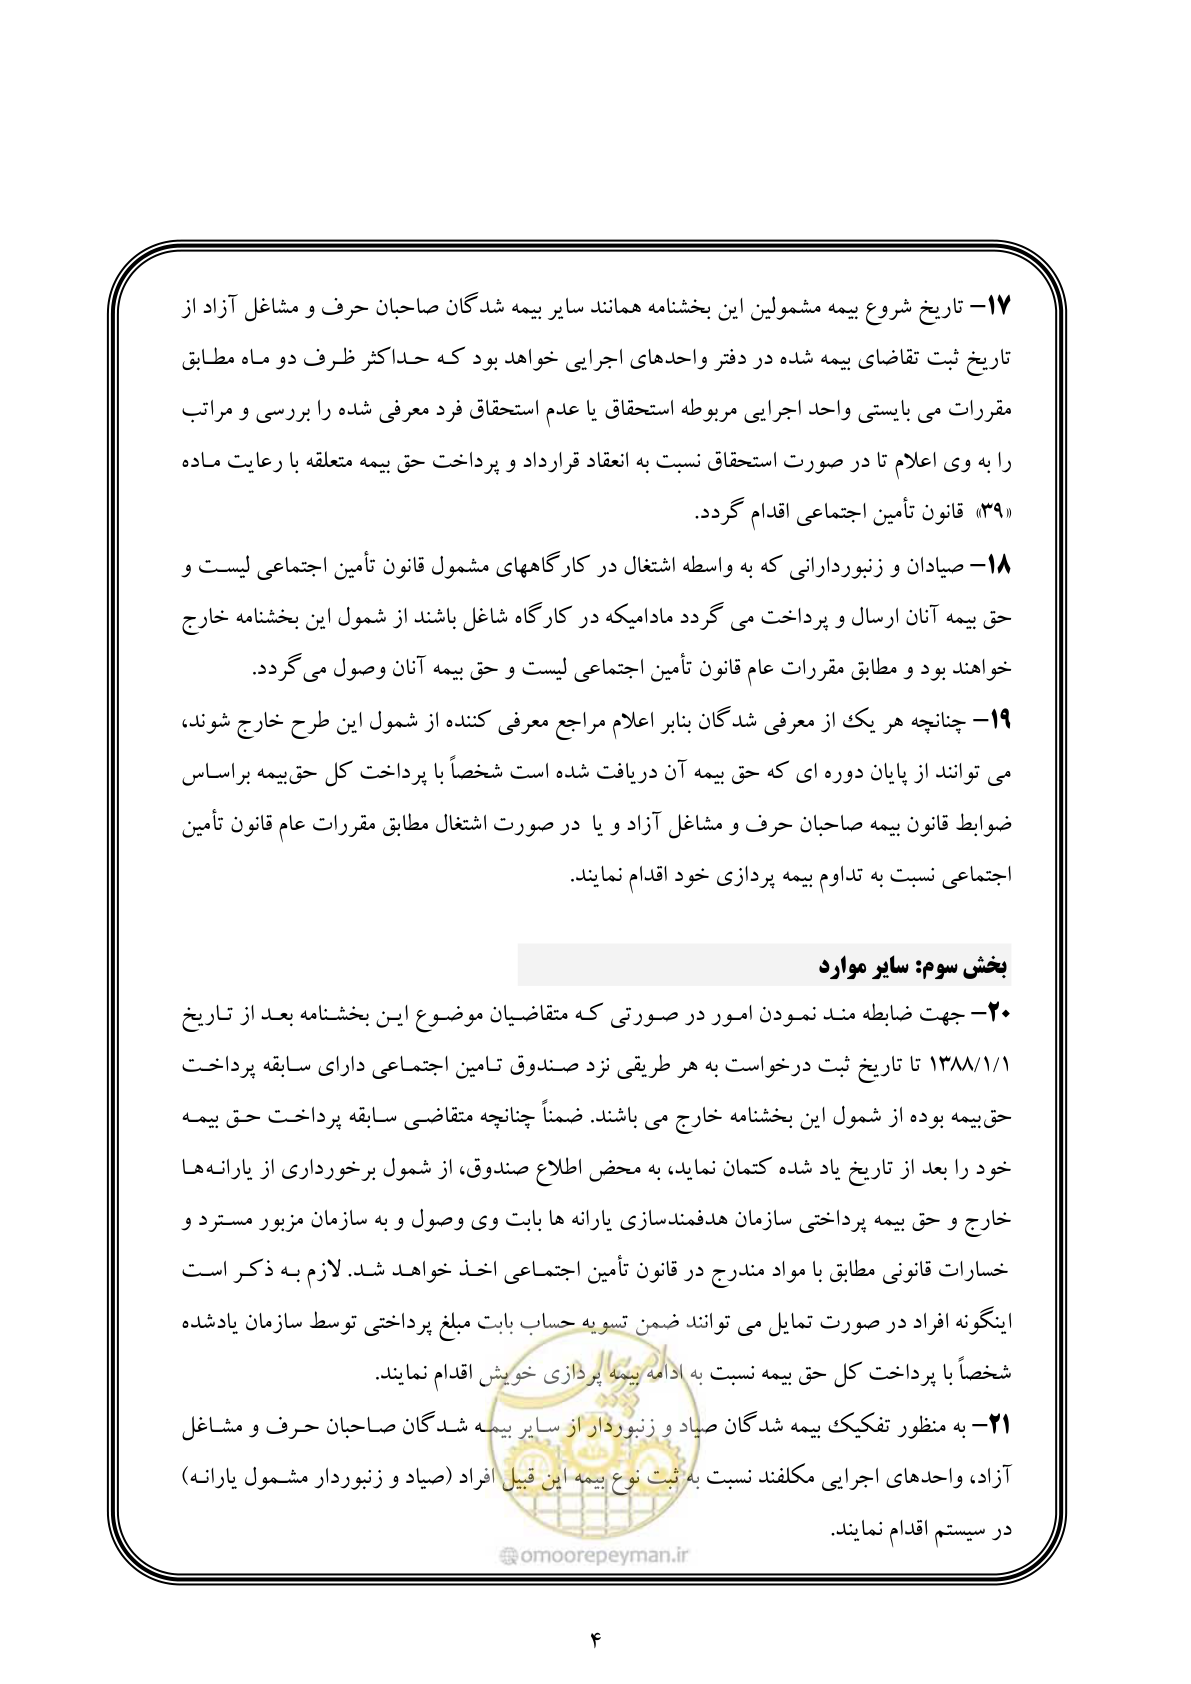 ۱۷– تاریخ شروع بیمه مشمولین این بخشنامه همانند سایر بیمه شدگان صاحبان حرف و مشاغل آزاد از
تاریخ ثبت تقاضای بیمه شده در دفتر واحدهای اجرایی خواهد بود که حداکثر ظرف دو ماه مطابق
مقررات می بایستی واحد اجرایی مربوطه استحقاق یا عدم استحقاق فرد معرفی شده را بررسی و مراتب
را به وی اعلام تا در صورت استحقاق نسبت به انعقاد قرارداد و پرداخت حق بیمه متعلقه با رعایت ماده
«۳۹» قانون تأمین اجتماعی اقدام گردد.
۱۸– صیادان و زنبوردارانی که به واسطه اشتغال در کارگاههای مشمول قانون تأمین اجتماعی لیست و
حق بیمه آنان ارسال و پرداخت می گردد مادامیکه در کارگاه شاغل باشند از شمول این بخشنامه خارج
خواهند بود و مطابق مقررات عام قانون تأمین اجتماعی لیست و حق بیمه آنان وصول می‌گردد.
۱۹– چنانچه هر یک از معرفی شدگان بنابر اعلام مراجع معرفی کننده از شمول این طرح خارج شوند،
می توانند از پایان دوره ای که حق بیمه آن دریافت شده است شخصاً با پرداخت کل حق‌بیمه براساس
ضوابط قانون بیمه صاحبان حرف و مشاغل آزاد و یا در صورت اشتغال مطابق مقررات عام قانون تأمین
اجتماعی نسبت به تداوم بیمه پردازی خود اقدام نمایند.
بخش سوم: سایر موارد
۲۰– جهت ضابطه مند نمودن امور در صورتی که متقاضیان موضوع این بخشنامه بعد از تاریخ
۱۳۸۸/۱/۱ تا تاریخ ثبت درخواست به هر طریقی نزد صندوق تامین اجتماعی دارای سابقه پرداخت
حق‌بیمه بوده از شمول این بخشنامه خارج می باشند. ضمناً چنانچه متقاضی سابقه پرداخت حق بیمه
خود را بعد از تاریخ یاد شده کتمان نماید، به محض اطلاع صندوق، از شمول برخورداری از یارانه‌ها
خارج و حق بیمه پرداختی سازمان هدفمندسازی یارانه ها بابت وی وصول و به سازمان مزبور مسترد و
خسارات قانونی مطابق با مواد مندرج در قانون تأمین اجتماعی اخذ خواهد شد. لازم به ذکر است
اینگونه افراد در صورت تمایل می توانند ضمن تسویه حساب بابت مبلغ پرداختی توسط سازمان یادشده
شخصاً با پرداخت کل حق بیمه نسبت به ادامه بیمه پردازی خویش اقدام نمایند.
۲۱– به منظور تفکیک بیمه شدگان صیاد و زنبوردار از سایر بیمه شدگان صاحبان حرف و مشاغل
آزاد، واحدهای اجرایی مکلفند نسبت به ثبت نوع بیمه این قبیل افراد (صیاد و زنبوردار مشمول یارانه)
در سیستم اقدام نمایند.
امور پیمان
@omoorepeyman.ir
۴